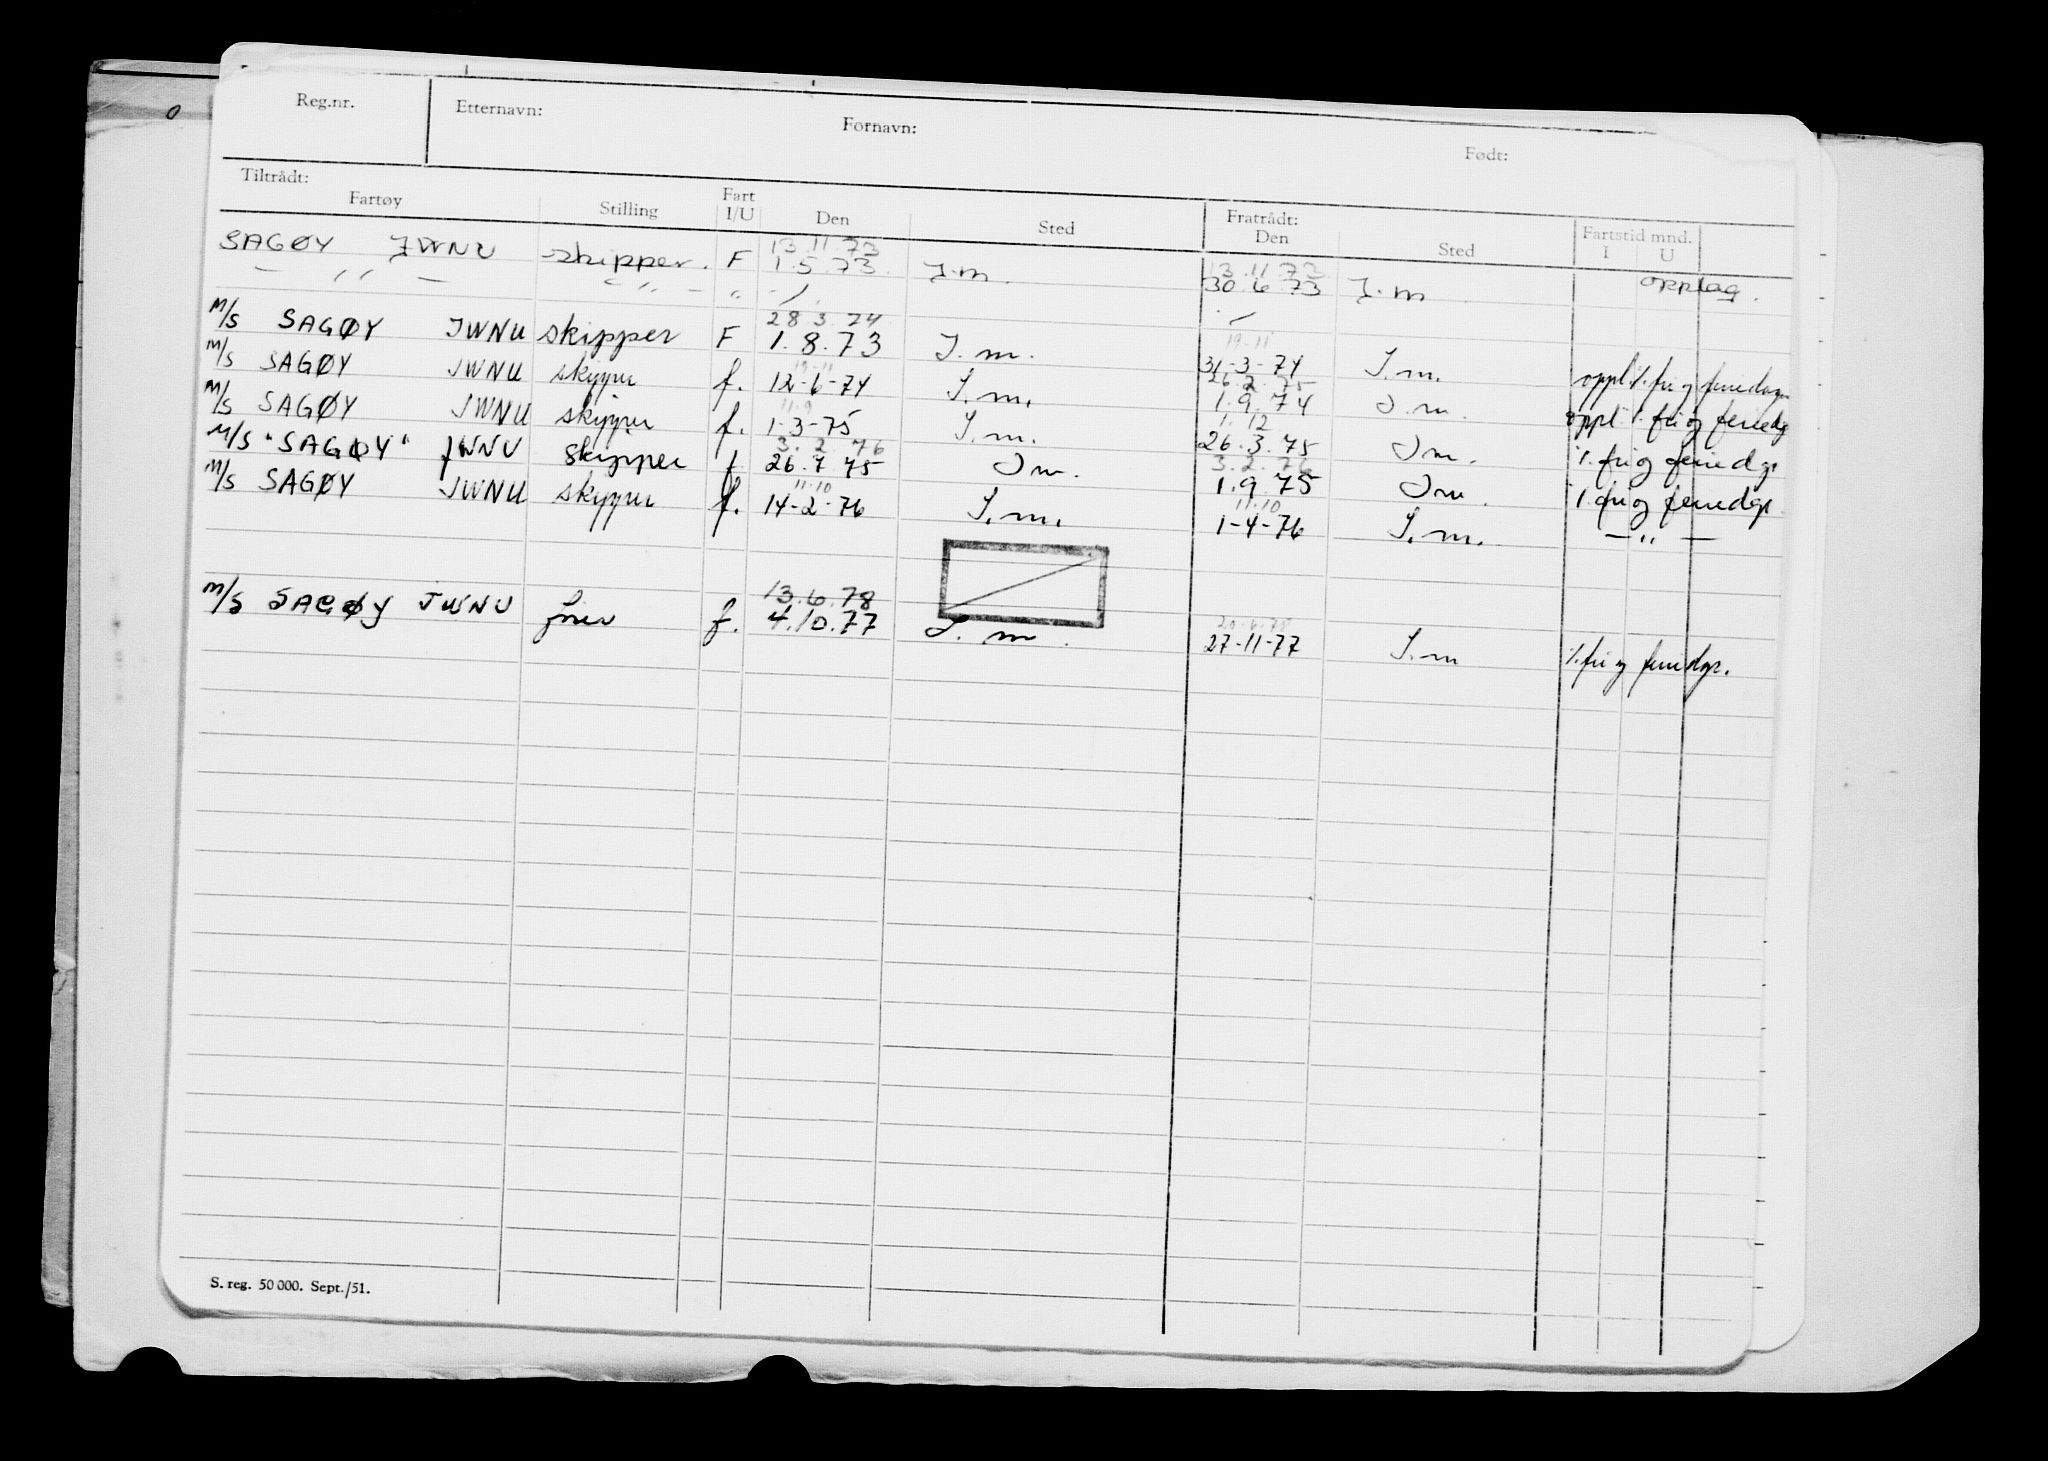 Reg.nr. Etternavn: Fornavn: Født:
Tiltrådt: Fratrådt:
Fartøy Stilling Fart I/U Den Sted Den Sted Fartstid mnd. I U
13.11.73 13.11.73
SAGØY JWNU skipper. F 1.5.73. J.m. 30.6.73 J.m opplag.
— ,, — — ,, — „
28.3.74 19-11
M/S SAGØY JWNU skipper F 1.8.73 J.m. 31-3-74 J.m. oppl. ÷ fri og feriedager
19-11 26.2.75
M/S SAGØY JWNU skipper f. 12-6-74 J.m. 1.9.74 J.m. oppl. ÷ fri og feriedg
11.9 1.12
M/S SAGØY JWNU skipper f. 1-3-75 J.m. 26.3.75 J.m. ÷ fri og feriedgr
3.2.76 3.2.76
M/S "SAGØY" JWNU skipper f. 26.4.75 J.m. 1.9.75 J.m. ÷ fri og feriedgr.
11.10 11.10
M/S SAGØY JWNU skipper f. 14-2-76 J.m. 1-4-76 J.m. — ,, —
13.6.78 20-6-78
M/S SAGØY JWNU f. 4.10.77 J.m. 27-11-77 J.m ÷ fri og feriedgr.
S. reg. 50 000. Sept./51.